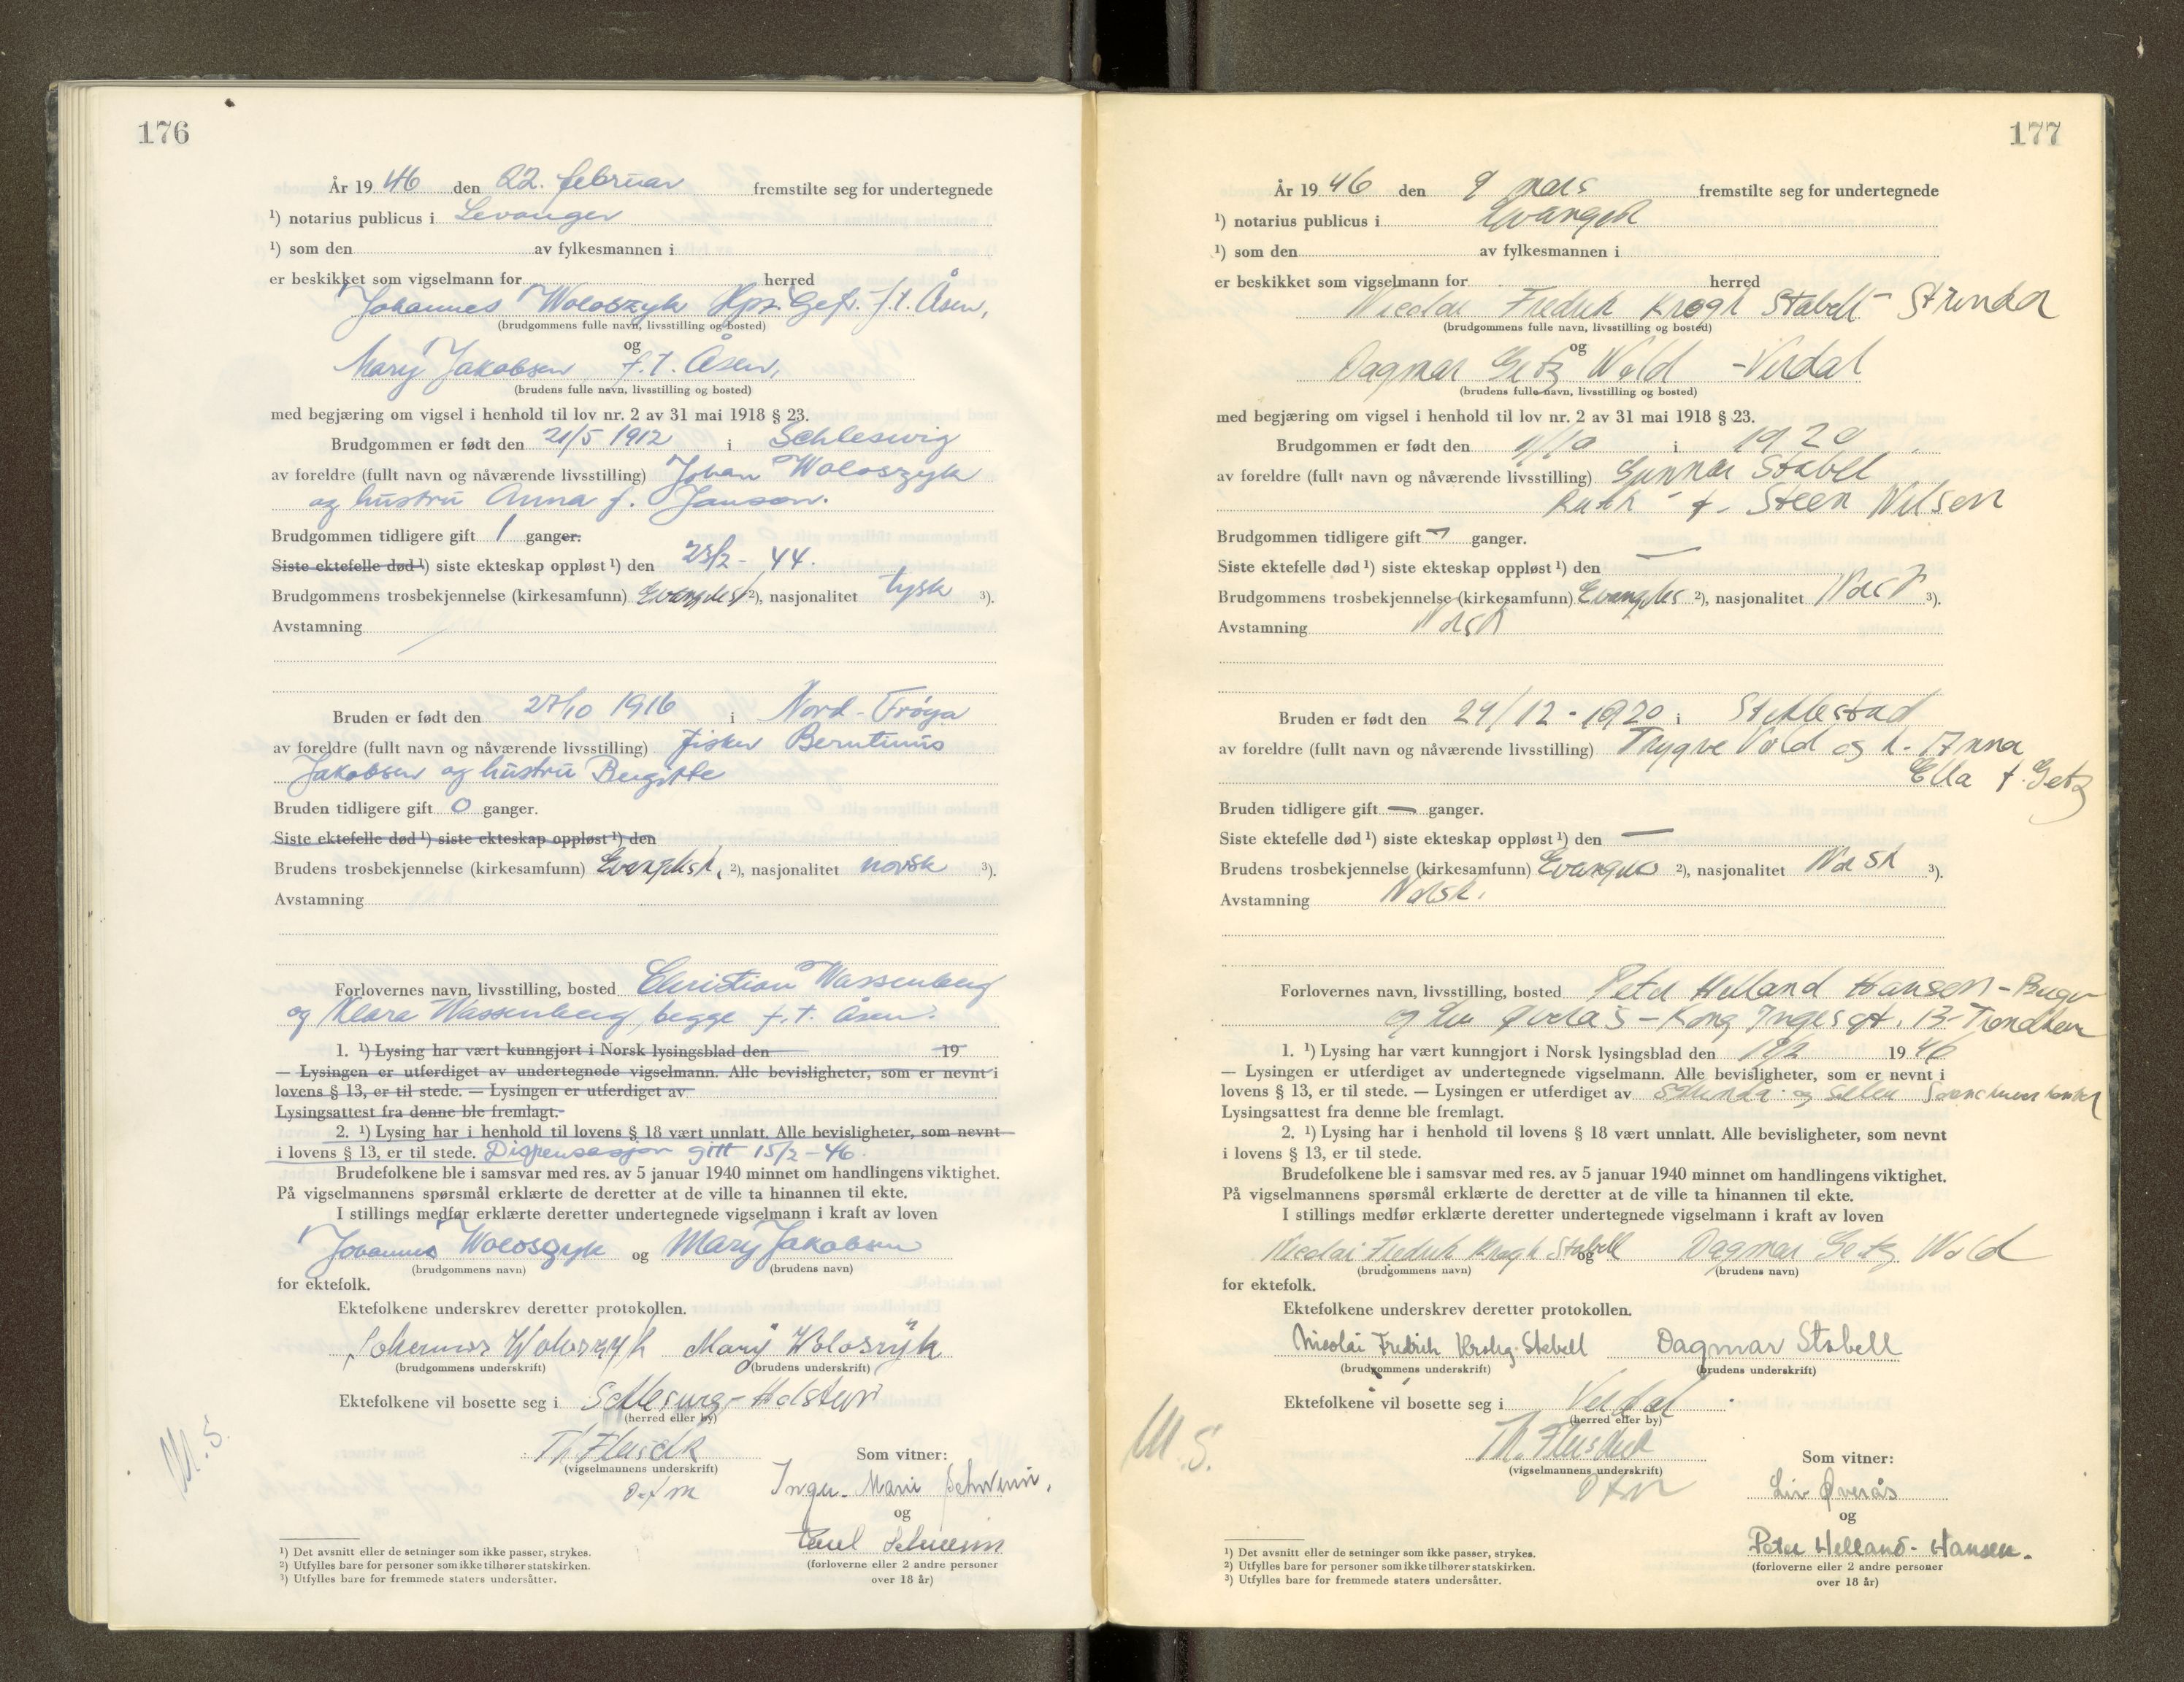 176
År 19 46 den 22. februar fremstilte seg for undertegnede
¹) notarius publicus i Levanger
¹) som den av fylkesmannen i
er beskikket som vigselmann for herred
Johannes Woloszyk Hpt. Gefr. f.t. Åsen,
(brudgommens fulle navn, livsstilling og bosted)
og
Mary Jakobsen f.t. Åsen,
(brudens fulle navn, livsstilling og bosted)
med begjæring om vigsel i henhold til lov nr. 2 av 31 mai 1918 § 23.
Brudgommen er født den 21/5 1912 i Schleswig
av foreldre (fullt navn og nåværende livsstilling) Johan Woloszyk
og hustru Anna f. Janson.
Brudgommen tidligere gift 1 ganger.
Siste ektefelle død ¹) siste ekteskap oppløst ¹) den 23/2 - 44.
Brudgommens trosbekjennelse (kirkesamfunn) Evangelisk ²), nasjonalitet tysk ³).
Avstamning
Bruden er født den 27/10 1916 i Nord-Frøya
av foreldre (fullt navn og nåværende livsstilling) fisker Berntinus
Jakobsen og hustru Bergitte
Bruden tidligere gift 0 ganger.
Siste ektefelle død ¹) siste ekteskap oppløst ¹) den
Brudens trosbekjennelse (kirkesamfunn) Evangelisk, ²), nasjonalitet norsk ³).
Avstamning
Forlovernes navn, livsstilling, bosted Christian Wassenberg
og Klara Wassenberg, begge f.t. Åsen.
1. ¹) Lysing har vært kunngjort i Norsk lysingsblad den 19
— Lysingen er utferdiget av undertegnede vigselmann. Alle bevisligheter, som er nevnt i
lovens § 13, er til stede. — Lysingen er utferdiget av
Lysingsattest fra denne ble fremlagt.
2. ¹) Lysing har i henhold til lovens § 18 vært unnlatt. Alle bevisligheter, som nevnt
i lovens § 13, er til stede. Dispensasjon gitt 15/2 - 46.
Brudefolkene ble i samsvar med res. av 5 januar 1940 minnet om handlingens viktighet.
På vigselmannens spørsmål erklærte de deretter at de ville ta hinannen til ekte.
I stillings medfør erklærte deretter undertegnede vigselmann i kraft av loven
Johannes Woloszyk og Mary Jakobsen
(brudgommens navn) (brudens navn)
for ektefolk.
Ektefolkene underskrev deretter protokollen.
Johannes Woloszyk Mary Woloszyk
(brudgommens underskrift) (brudens underskrift)
Ektefolkene vil bosette seg i Schleswig-Holstein
(herred eller by)
(vigselmannens underskrift)
Som vitner:
Inger-Marie Schwenn.
og
Paul Schwenn
(forloverne eller 2 andre personer
over 18 år)
M. S.
¹) Det avsnitt eller de setninger som ikke passer, strykes.
²) Utfylles bare for personer som ikke tilhører statskirken.
³) Utfylles bare for fremmede staters undersåtter.
177
År 19 46 den 9 mars fremstilte seg for undertegnede
¹) notarius publicus i Levanger
¹) som den av fylkesmannen i
er beskikket som vigselmann for herred
Nicolai Fredrik Krogh Stabell - Strinda
(brudgommens fulle navn, livsstilling og bosted)
og
Dagmar Getz Wold - Verdal
(brudens fulle navn, livsstilling og bosted)
med begjæring om vigsel i henhold til lov nr. 2 av 31 mai 1918 § 23.
Brudgommen er født den 1/10 i 1920
av foreldre (fullt navn og nåværende livsstilling) Gunnar Stabel
Ruth - f. Steen Nilsen
Brudgommen tidligere gift — ganger.
Siste ektefelle død ¹) siste ekteskap oppløst ¹) den —
Brudgommens trosbekjennelse (kirkesamfunn) Evangelisk ²), nasjonalitet Norsk ³).
Avstamning Norsk
Bruden er født den 29/12 - 1920 i Stiklestad
av foreldre (fullt navn og nåværende livsstilling) Trygve Vold og h. Anna
Ella f. Getz
Bruden tidligere gift — ganger.
Siste ektefelle død ¹) siste ekteskap oppløst ¹) den —
Brudens trosbekjennelse (kirkesamfunn) Evangelisk ²), nasjonalitet Norsk ³).
Avstamning Norsk.
Forlovernes navn, livsstilling, bosted Peter Helland Hansen - Bergen
og Liv Øverås - Kong Inges gt. 13 - Trondheim
1. ¹) Lysing har vært kunngjort i Norsk lysingsblad den 19 46
— Lysingen er utferdiget av undertegnede vigselmann. Alle bevisligheter, som er nevnt i
lovens § 13, er til stede. — Lysingen er utferdiget av Strinda og Selbu Sorenskriverkontor
Lysingsattest fra denne ble fremlagt.
2. ¹) Lysing har i henhold til lovens § 18 vært unnlatt. Alle bevisligheter, som nevnt
i lovens § 13, er til stede.
Brudefolkene ble i samsvar med res. av 5 januar 1940 minnet om handlingens viktighet.
På vigselmannens spørsmål erklærte de deretter at de ville ta hinannen til ekte.
I stillings medfør erklærte deretter undertegnede vigselmann i kraft av loven
Nicolai Fredrik Krogh Stabell og Dagmar Getz Wold
(brudgommens navn) (brudens navn)
for ektefolk.
Ektefolkene underskrev deretter protokollen.
Nicolai Fredrik Krohg-Stabell Dagmar Stabell
(brudgommens underskrift) (brudens underskrift)
Ektefolkene vil bosette seg i Verdal
(herred eller by)
(vigselmannens underskrift)
Som vitner:
Liv Øverås
og
Peter Helland-Hansen.
(forloverne eller 2 andre personer
over 18 år)
M. S.
¹) Det avsnitt eller de setninger som ikke passer, strykes.
²) Utfylles bare for personer som ikke tilhører statskirken.
³) Utfylles bare for fremmede staters undersåtter.